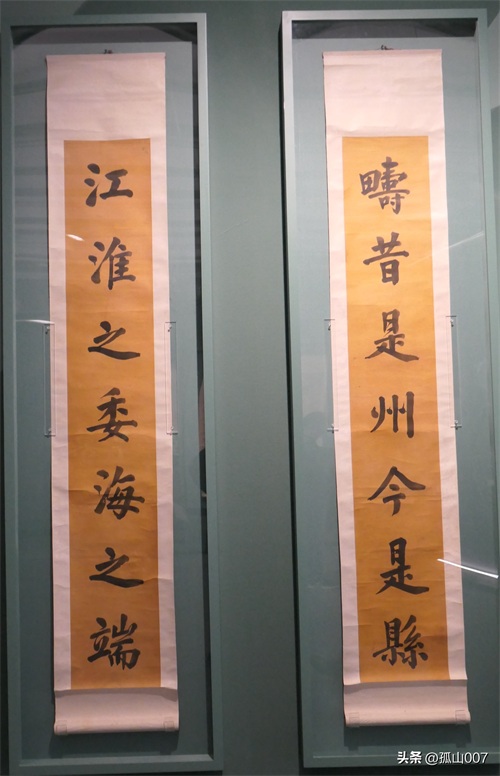 疇昔是州今是縣
江淮之委海之端
头条 @孤山007